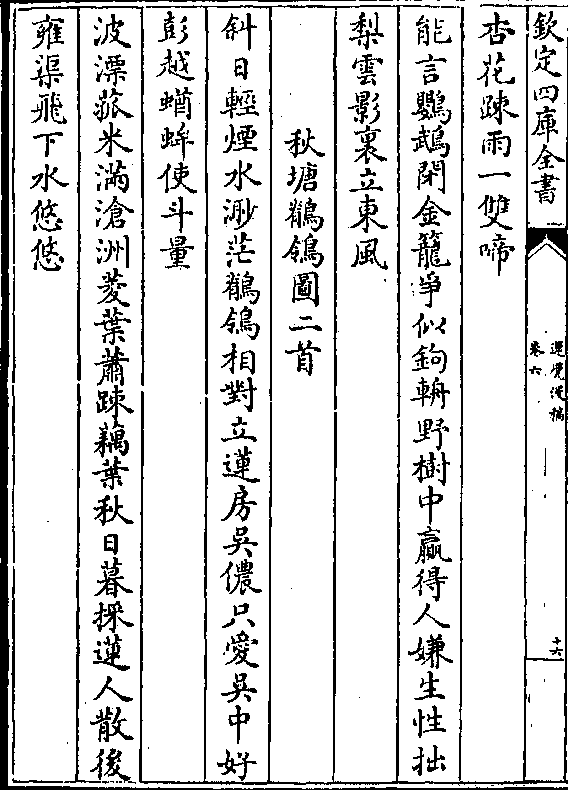 欽定四庫全書
卷六
十六
杏花疎雨一雙啼
能言鸚鵡閉金籠爭似鉤輈野樹中贏得人嫌生性拙
梨雲影裏立東風
秋塘鶺鴒圖二首
斜日輕煙水渺茫鶺鴒相對立蓮房吳儂只愛吳中好
彭越蝤蛑使斗量
波漂菰米滿滄洲菱葉蕭踈藕葉秋日暮採蓮人散後
雍渠飛下水悠悠